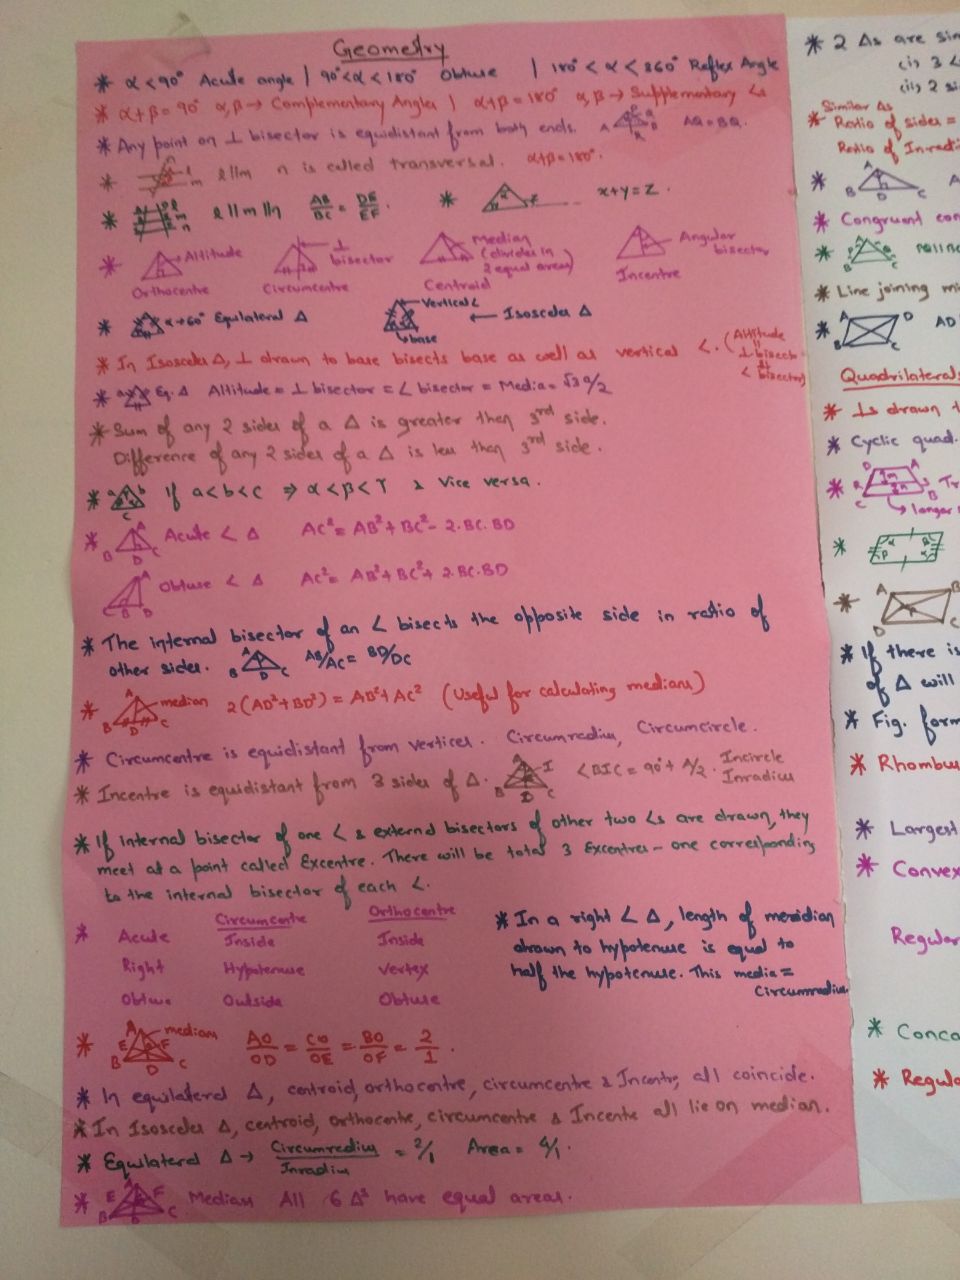 Geometry
* α<90° Acute angle | 90°<α<180° Obtuse | 180°<α<360° Reflex Angle
* α+β=90° α,β→ Complementary Angles | α+β=180° α,β→ Supplementary ∠s
* Any point on ⊥ bisector is equidistant from both ends. AQ=BQ.
* l||m n is called transversal. α+β=180°.
* l||m||n AB/BC = DE/EF. * x+y=z.
* Altitude ⊥ bisector Median (divides in 2 equal areas) Angular bisector
Orthocentre Circumcentre Centroid Incentre
* α→60° Equilateral Δ Vertical∠ base ← Isosceles Δ
* In Isosceles Δ, ⊥ drawn to base bisects base as well as vertical ∠. (Altitude = ⊥ bisect ∠ bisector)
* Eq. Δ Altitude = ⊥ bisector = ∠ bisector = Media = √3 a/2
* Sum of any 2 sides of a Δ is greater then 3rd side.
Difference of any 2 sides of a Δ is less then 3rd side.
* If a<b<c ⇒ α<β<γ & Vice versa.
* Acute ∠ Δ AC² = AB²+BC²- 2.BC.BD
Obtuse ∠ Δ AC² = AB²+BC²+ 2.BC.BD
* The internal bisector of an ∠ bisects the opposite side in ratio of
other sides. AB/AC = BD/DC
* median 2(AD²+BD²) = AB²+AC² (Useful for calculating medians)
* Circumcentre is equidistant from vertices. Circumradius, Circumcircle.
* Incentre is equidistant from 3 sides of Δ. ∠BIC = 90°+ A/2. Incircle Inradius
* If internal bisector of one ∠ & external bisectors of other two ∠s are drawn, they
meet at a point called Excentre. There will be total 3 Excentres - one corresponding
to the internal bisector of each ∠.
Circumcentre Orthocentre
* Acute Inside Inside
Right Hypotenuse vertex
Obtuse Outside Obtuse
* In a right ∠ Δ, length of meridian
drawn to hypotenuse is equal to
half the hypotenuse. This media =
Circumradius.
* medians AO/OD = CO/OE = BO/OF = 2/1.
* In equilateral Δ, centroid, orthocentre, circumcentre & Incentre, all coincide.
* In Isosceles Δ, centroid, orthocentre, circumcentre & Incentre all lie on median.
* Equilateral Δ → Circumradius/Inradius = 2/1 Area = 4/1.
* Medians All 6 Δs have equal areas.
* 2 Δs are sim
(i) 3 ∠
(ii) 2 si
Similar Δs
* Ratio of sides =
Ratio of Inradi
* Congruent con
* Line joining mi
* AD
Quadrilaterals
* ⊥s drawn t
* Cyclic quad.
* Tr
longer
* If there is
of Δ will
* Fig. form
* Rhombu
* Largest
* Convex
Regular
* Conca
* Regula